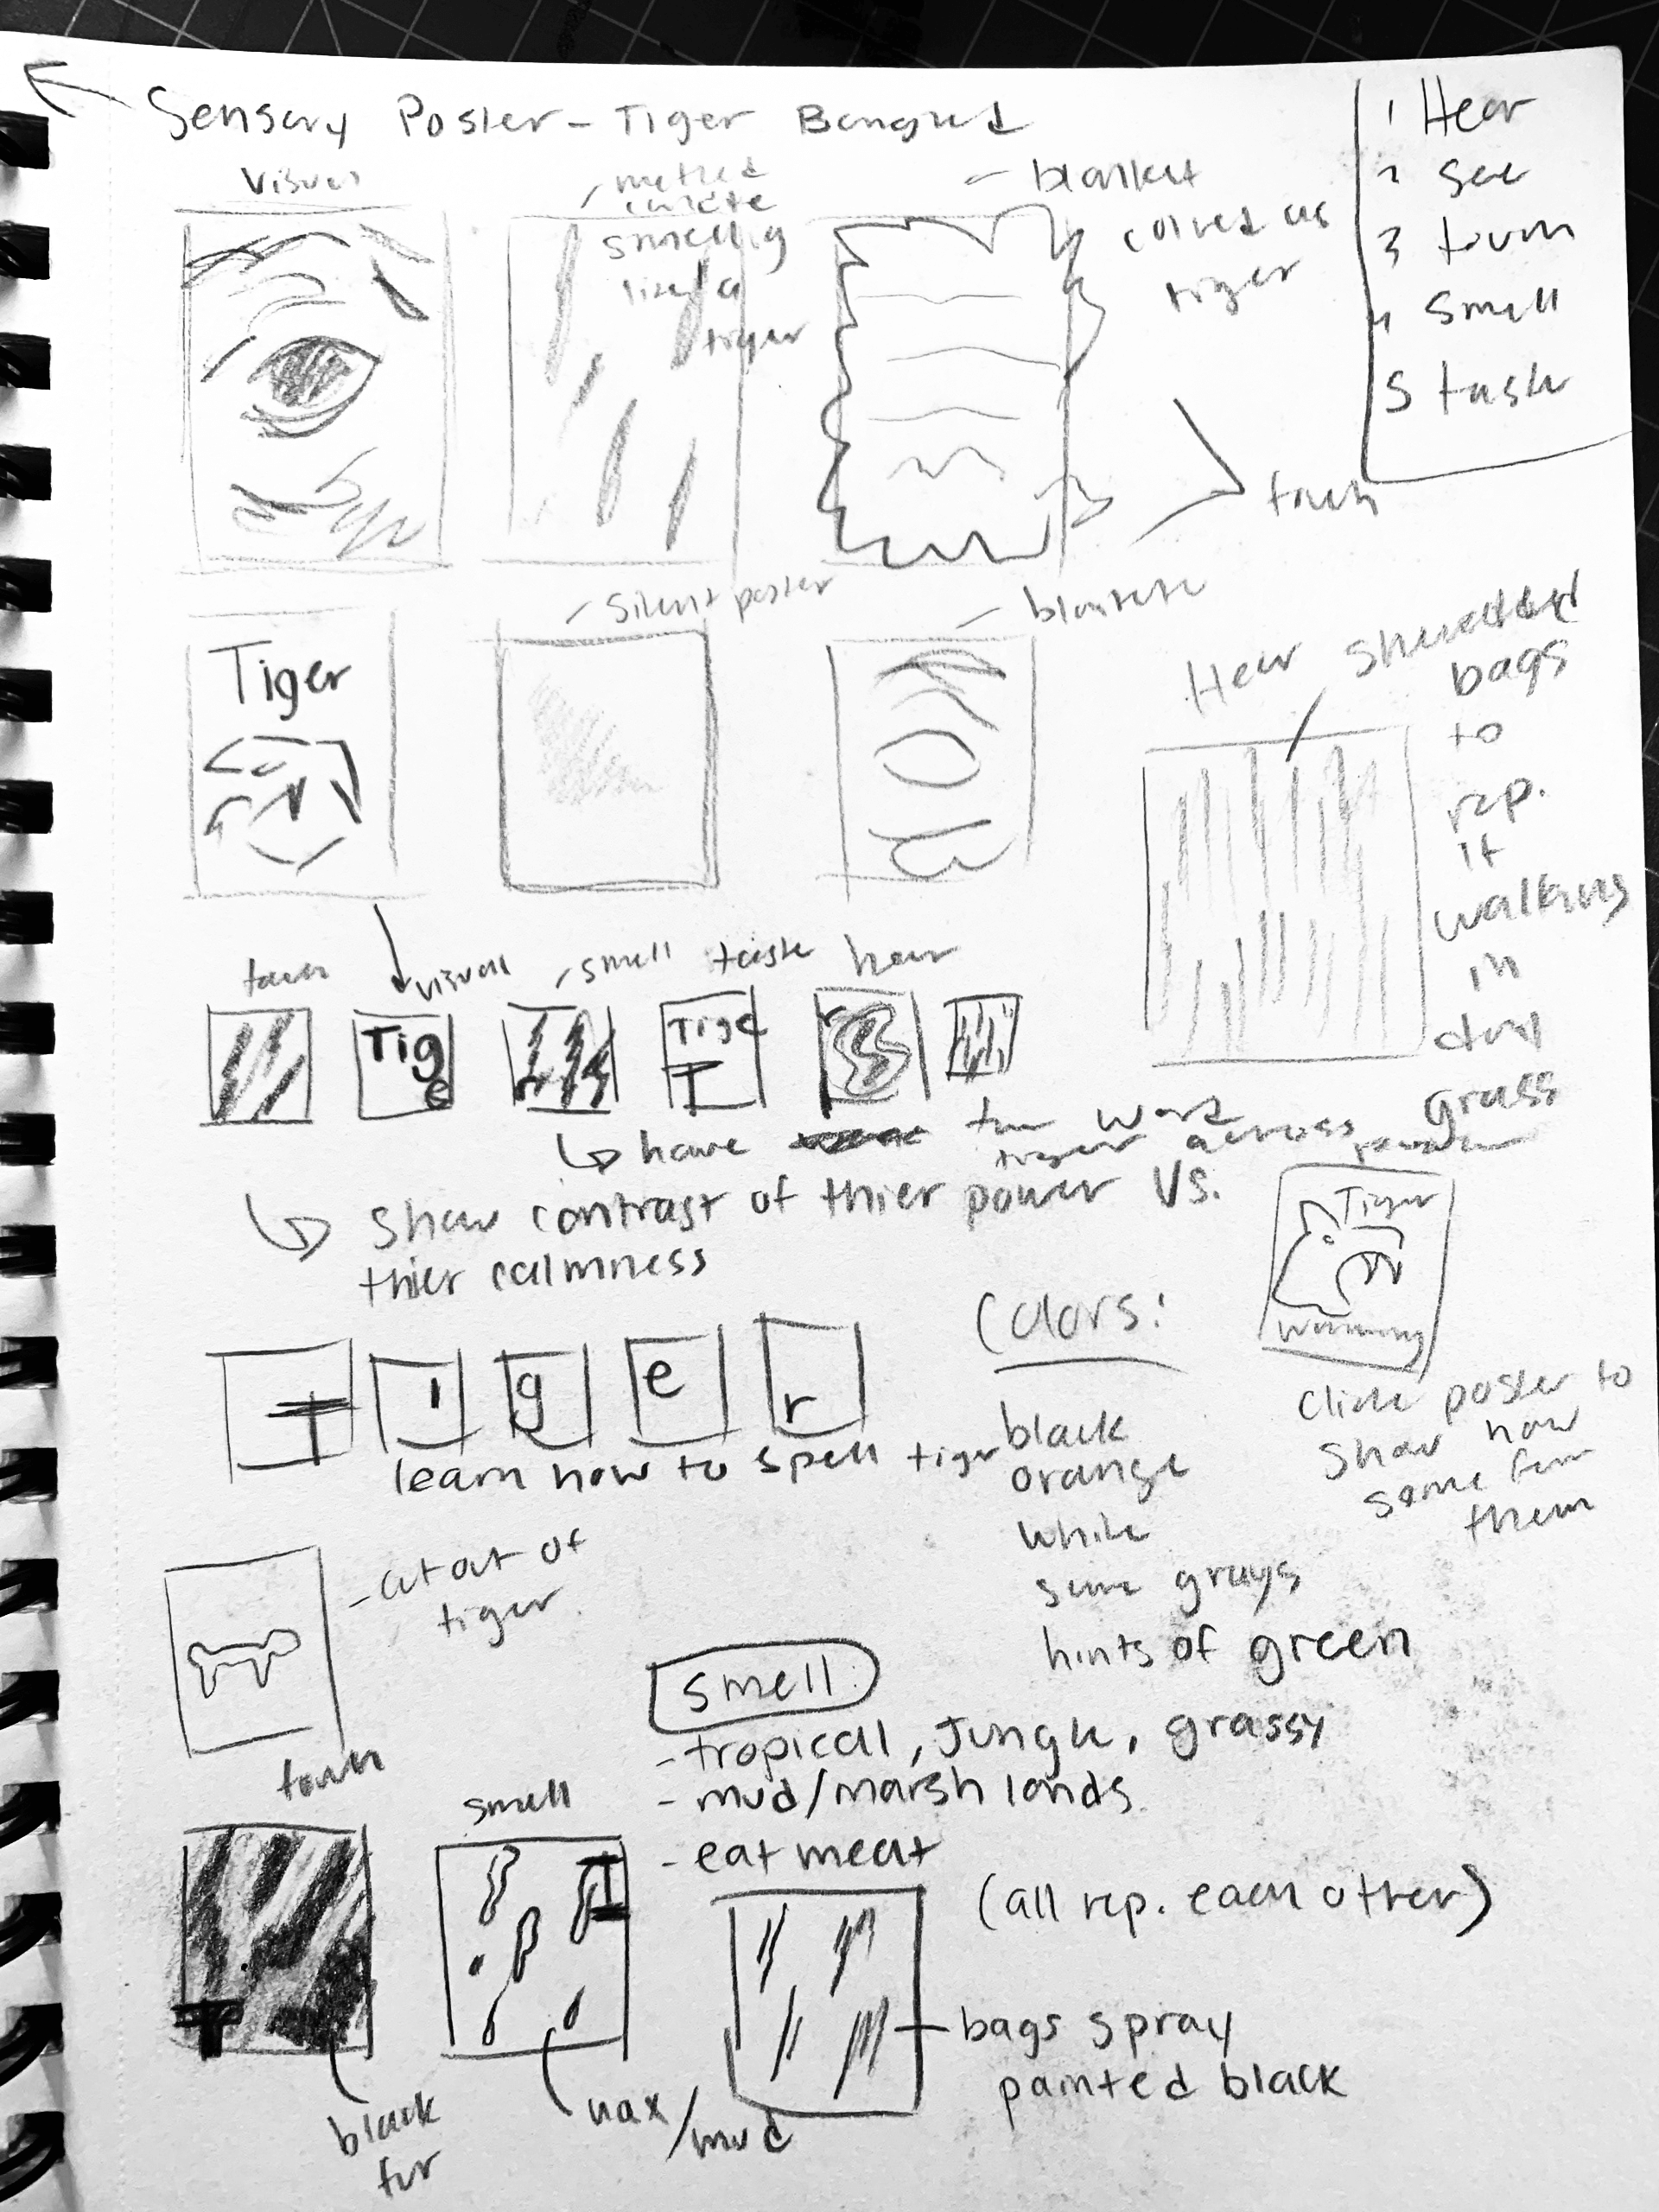 Sensory Poster - Tiger
1 Hear
2 See
3 touch
4 Smell
5 taste
visual
- melted
candle
smelling
like a
tiger
- blanket
colored as
tiger
touch
- Silent poster
- blankete
Tiger
Hear shredded
bags
to
rep.
it
walking
in
dry
grass
touch
visual
- smell
taste
hear
Tig
e
r
Tige
T
r
have the word
tiger across
show contrast of thier power vs.
thier calmness
Tiger
Warning
T
i
g
e
r
learn how to spell tiger
Colors:
black
orange
white
some grays
hints of green
Click poster to
show how
some fear
them
- cut out of
tiger
smell
- tropical, Jungle, grassy
- mud/marsh lands
- eat meat
touch
T
black
fur
smell
T
wax/
mud
(all rep. each other)
bags spray
painted black